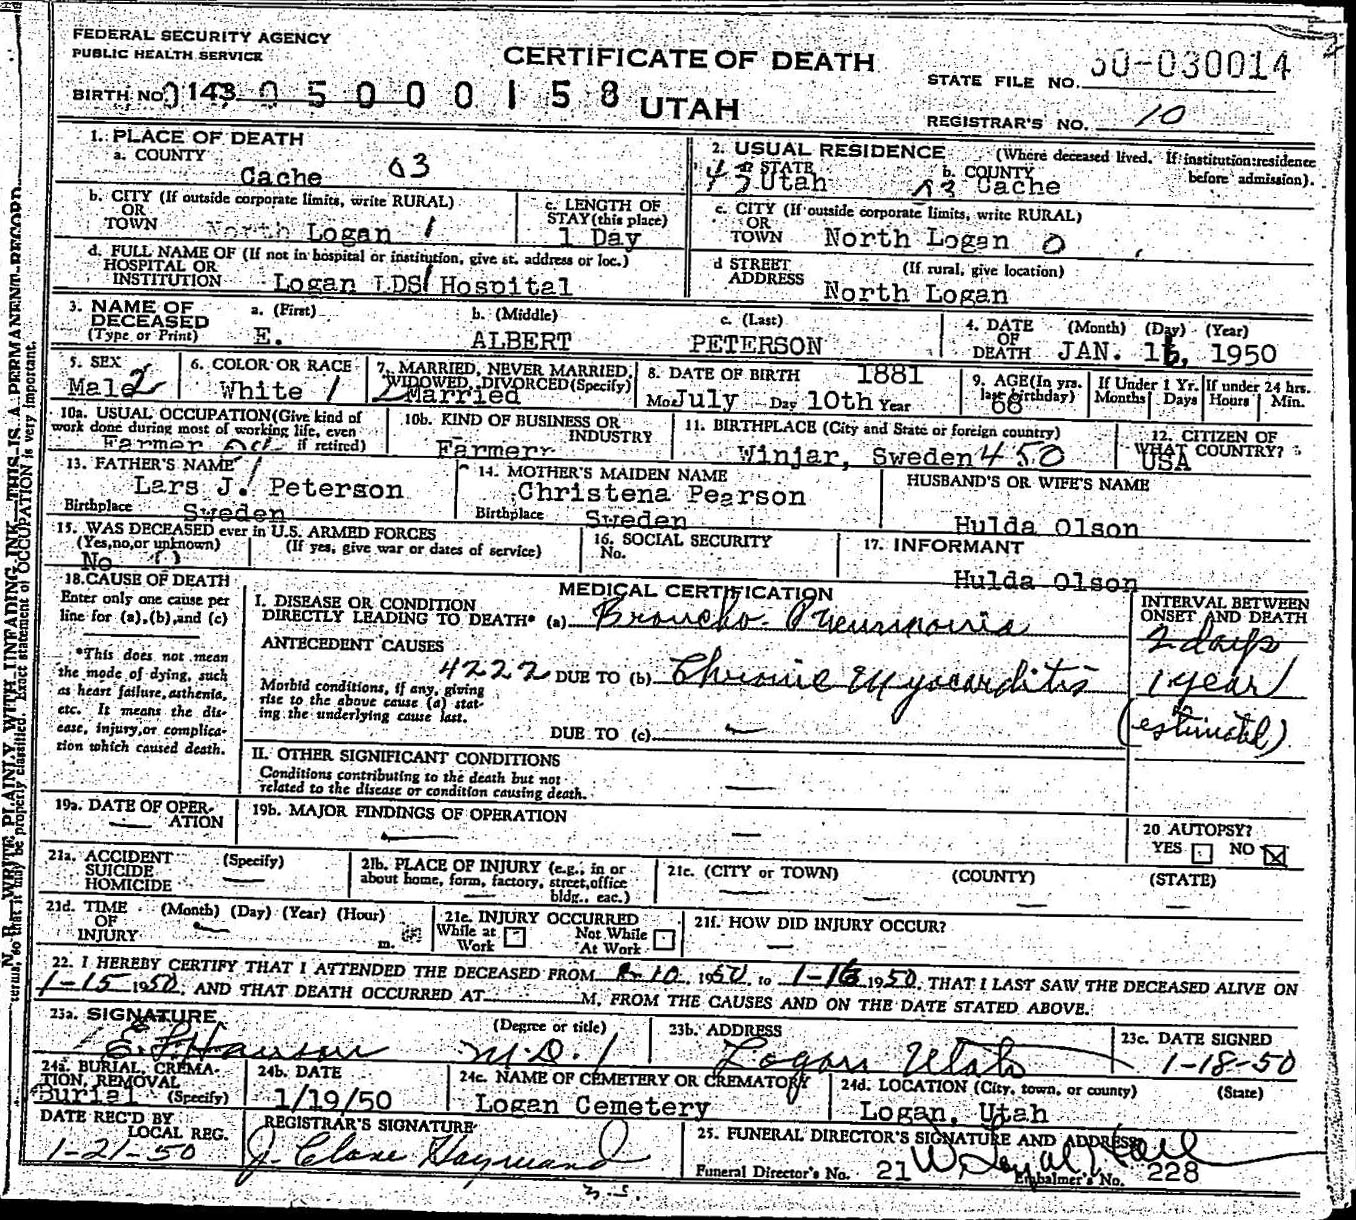 FEDERAL SECURITY AGENCY
PUBLIC HEALTH SERVICE
CERTIFICATE OF DEATH
STATE FILE NO. 50-030014
BIRTH NO. 143 05000158
UTAH
REGISTRAR'S NO. 10
1. PLACE OF DEATH
a. COUNTY
Cache 03
2. USUAL RESIDENCE (Where deceased lived. If institution: residence before admission).
a. STATE
43 Utah
b. COUNTY
03 Cache
b. CITY (If outside corporate limits, write RURAL)
OR
TOWN North Logan 1
c. LENGTH OF
STAY (this place)
1 Day
c. CITY (If outside corporate limits, write RURAL)
OR
TOWN North Logan 0
d. FULL NAME OF (If not in hospital or institution, give st. address or loc.)
HOSPITAL OR
INSTITUTION Logan LDS Hospital
d STREET (If rural, give location)
ADDRESS North Logan
3. NAME OF
DECEASED
(Type or Print)
a. (First)
E.
b. (Middle)
ALBERT
c. (Last)
PETERSON
4. DATE (Month) (Day) (Year)
OF
DEATH JAN. 16, 1950
5. SEX
Male 2
6. COLOR OR RACE
White 1
7. MARRIED, NEVER MARRIED,
WIDOWED, DIVORCED (Specify)
2 Married
8. DATE OF BIRTH 1881
Mo. July Day 10th Year
9. AGE (In yrs.
last birthday)
68
If Under 1 Yr.
Months Days
If under 24 hrs.
Hours Min.
10a. USUAL OCCUPATION (Give kind of
work done during most of working life, even
if retired)
Farmer
10b. KIND OF BUSINESS OR
INDUSTRY
Farmerr
11. BIRTHPLACE (City and State or foreign country)
Winjar, Sweden 450
12. CITIZEN OF
WHAT COUNTRY?
USA
13. FATHER'S NAME
Lars J. Peterson
Birthplace Sweden
14. MOTHER'S MAIDEN NAME
Christena Pearson
Birthplace Sweden
HUSBAND'S OR WIFE'S NAME
Hulda Olson
15. WAS DECEASED ever in U.S. ARMED FORCES
(Yes, no, or unknown) (If yes, give war or dates of service)
No 0
16. SOCIAL SECURITY
No.
17. INFORMANT
Hulda Olson
18. CAUSE OF DEATH
Enter only one cause per
line for (a), (b), and (c)
*This does not mean
the mode of dying, such
as heart failure, asthenia,
etc. It means the dis-
ease, injury, or complica-
tion which caused death.
MEDICAL CERTIFICATION
I. DISEASE OR CONDITION
DIRECTLY LEADING TO DEATH* (a) Broncho-Pneumonia
ANTECEDENT CAUSES
4222 DUE TO (b) Chronic Myocarditis
Morbid conditions, if any, giving
rise to the above cause (a) stat-
ing the underlying cause last.
DUE TO (c) —
INTERVAL BETWEEN
ONSET AND DEATH
2 days
1 year
(estimated)
II. OTHER SIGNIFICANT CONDITIONS
Conditions contributing to the death but not
related to the disease or condition causing death. —
19a. DATE OF OPER-
ATION —
19b. MAJOR FINDINGS OF OPERATION
— —
20 AUTOPSY?
YES ☐ NO ☒
21a. ACCIDENT (Specify)
SUICIDE —
HOMICIDE
21b. PLACE OF INJURY (e.g., in or
about home, form, factory, street, office
bldg., eac.) —
21c. (CITY or TOWN) (COUNTY) (STATE)
— — —
21d. TIME (Month) (Day) (Year) (Hour)
OF —
INJURY m.
21e. INJURY OCCURRED
While at Work ☐ Not While At Work ☐
21f. HOW DID INJURY OCCUR?
—
22. I HEREBY CERTIFY THAT I ATTENDED THE DECEASED FROM 1-10, 1950, to 1-16 1950, THAT I LAST SAW THE DECEASED ALIVE ON
1-15 1950, AND THAT DEATH OCCURRED AT M, FROM THE CAUSES AND ON THE DATE STATED ABOVE.
23a. SIGNATURE (Degree or title)
E. L. Hanson M.D. 1
23b. ADDRESS
Logan Utah
23c. DATE SIGNED
1-18-50
24a. BURIAL, CREMA-
TION, REMOVAL
(Specify)
Burial
24b. DATE
1/19/50
24c. NAME OF CEMETERY OR CREMATORY
Logan Cemetery
24d. LOCATION (City, town, or county) (State)
Logan, Utah
DATE REC'D BY
LOCAL REG.
1-21-50
REGISTRAR'S SIGNATURE
J. Clare Hayward
25. FUNERAL DIRECTOR'S SIGNATURE AND ADDRESS
W. Loyal Hall
Funeral Director's No. 21 Embalmer's No. 228
N. B. WRITE PLAINLY, WITH UNFADING INK—THIS IS A PERMANENT RECORD.
terms, so that it may be properly classified. Exact statement of OCCUPATION is very important.